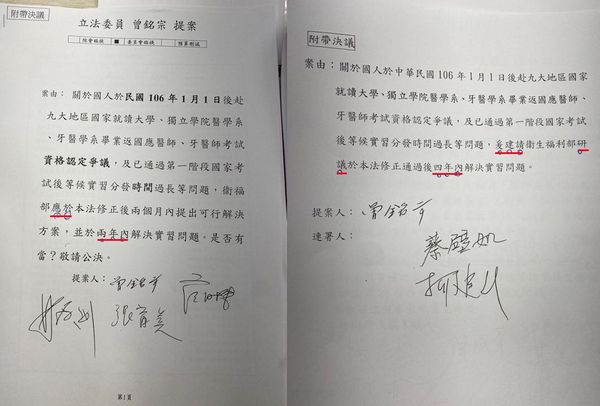 附帶決議
立法委員 曾銘宗 提案
院會磋議 ■ 委員會磋議 預算刪減
案由：關於國人於民國 106 年 1 月 1 日後赴
九大地區國家就讀大學、獨立學院醫學系
、牙醫學系畢業返國應醫師、牙醫師考試
資格認定爭議，及已通過第一階段國家考
試後等候實習分發時間過長等問題，衛福
部應於本法修正後兩個月內提出可行解決
方案，並於兩年內解決實習問題。是否有
當？敬請公決。
提案人：曾銘宗
張育美
第1頁
附帶決議
案由：關於國人於中華民國 106 年 1 月 1 日後赴九大地區國家
就讀大學、獨立學院醫學系、牙醫學系畢業返國應醫師、
牙醫師考試資格認定爭議，及已通過第一階段國家考試
後等候實習分發時間過長等問題，爰建請衛生福利部研
議於本法修正通過後四年內解決實習問題。
提案人：曾銘宗
連署人：
蔡壁如
柯建銘